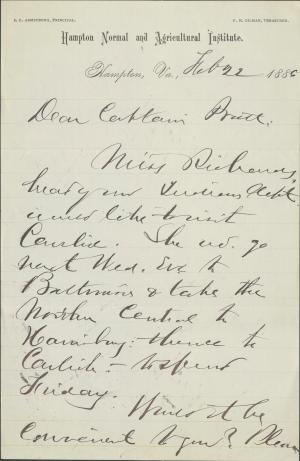 S. C. ARMSTRONG, PRINCIPAL. F. N. GILMAN, TREASURER.
Hampton Normal and Agricultural Institute.
Hampton, Va., Feb 22 1886
Dear Captain Pratt:
Miss Richards,
head of our Indian Dept.
would like to visit
Carlisle. She wd. go
next Wed. Eve to
Baltimore & take the
Northn Central to
Harrisburg: thence to
Carlisle – to spend
Friday.
Would it be
convenient to you? Please